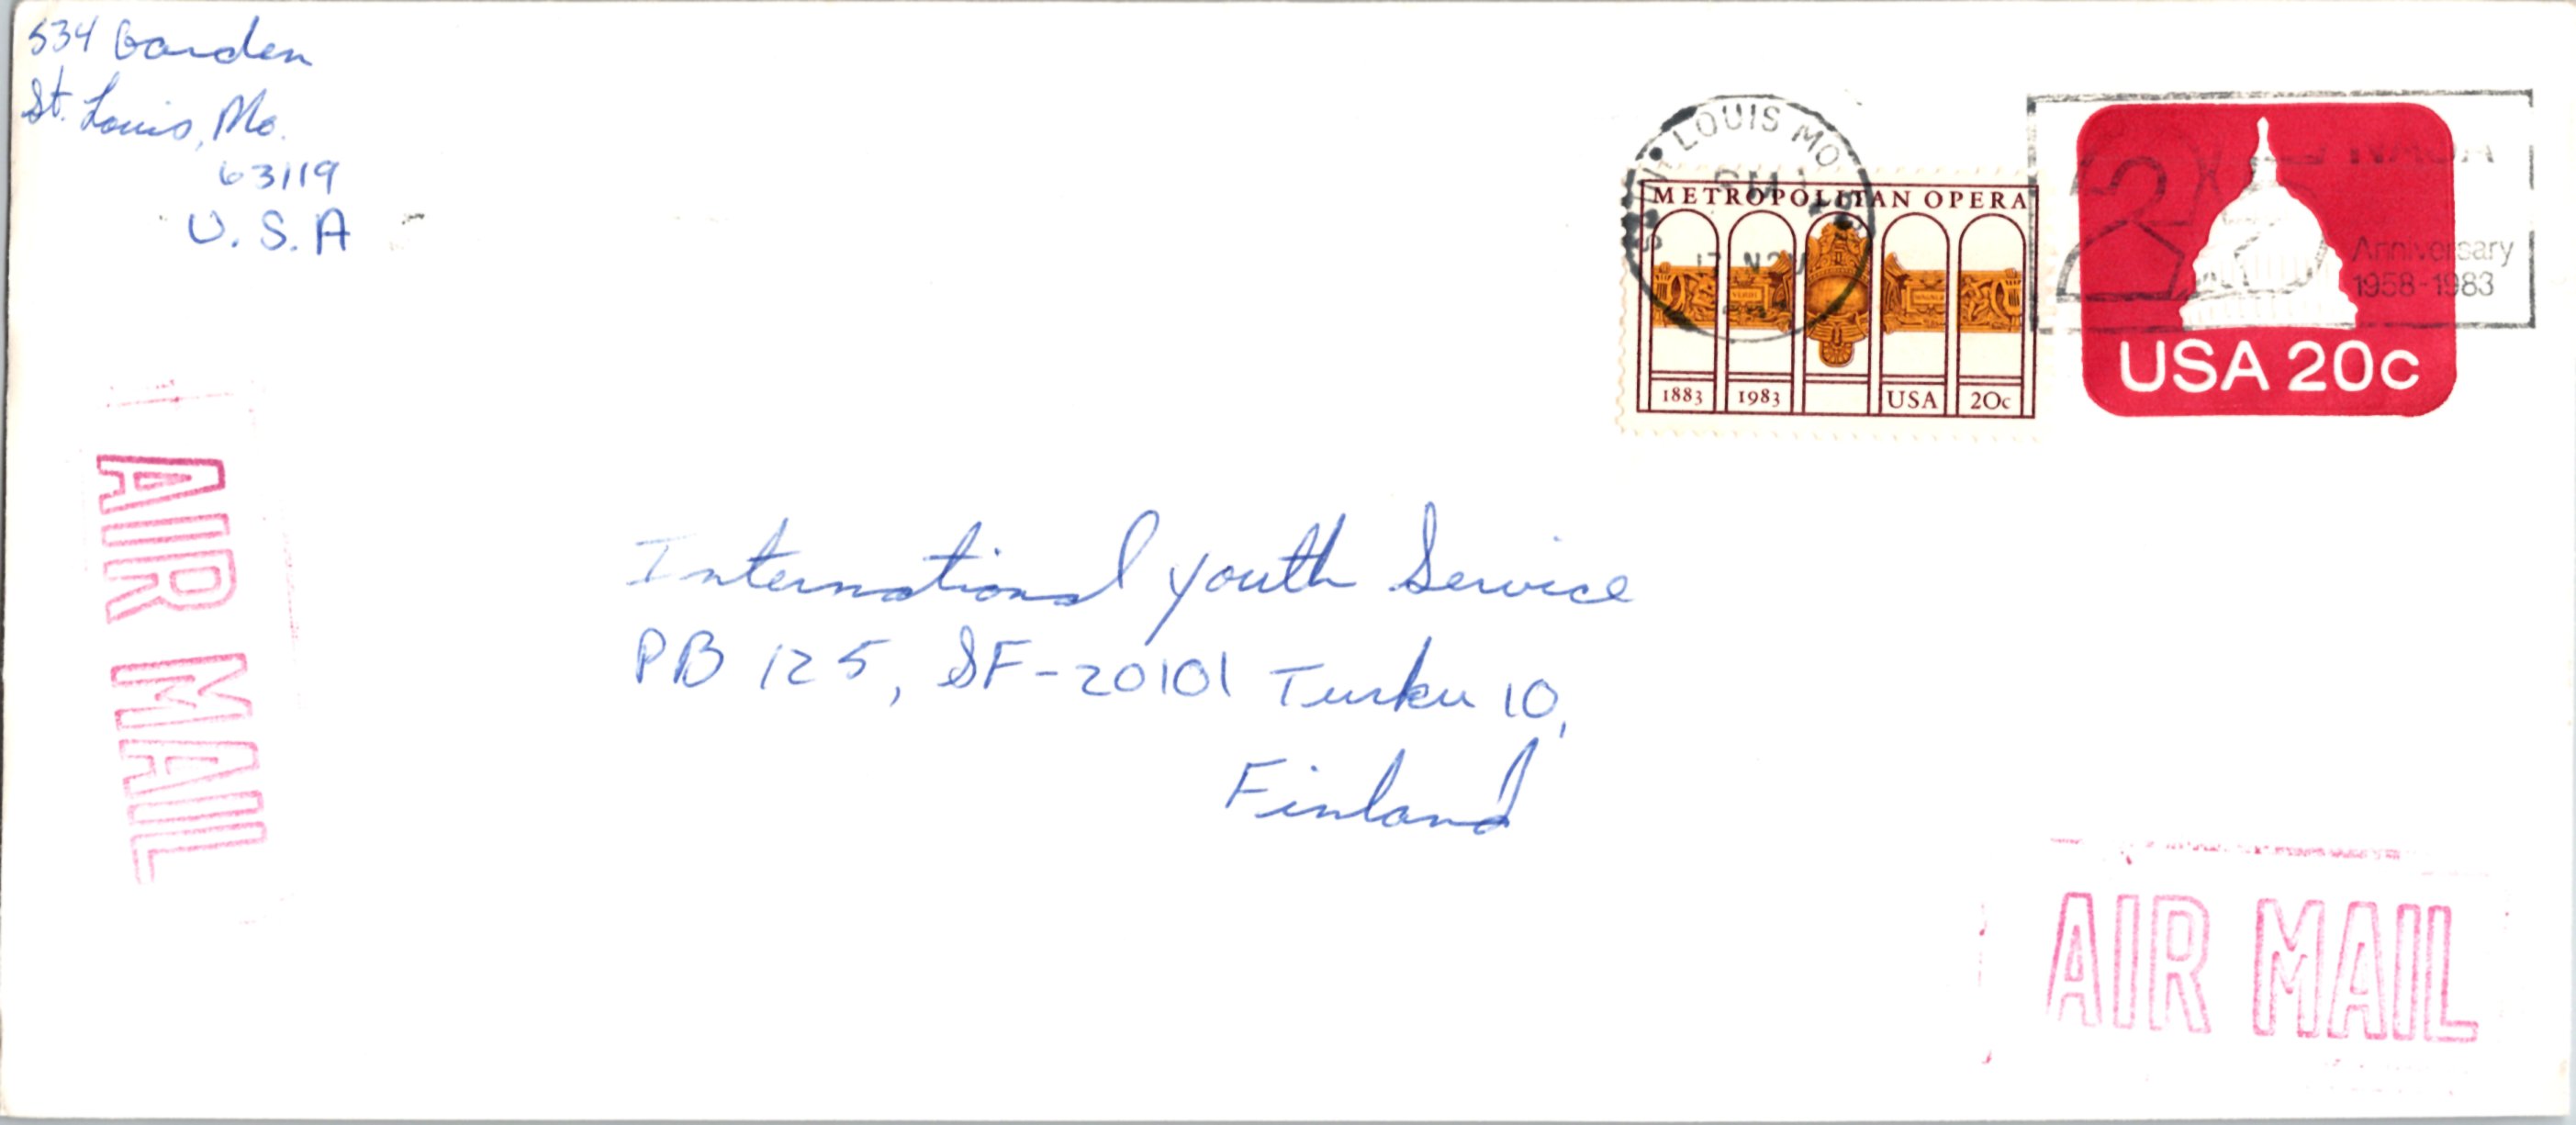 534 Garden
St. Louis, Mo.
63119
U.S.A
LOUIS MO
PM
17 NOV
METROPOLITAN OPERA
1883 1983 USA 20c
NASA
Anniversary
1958-1983
USA 20c
AIR MAIL
International Youth Service
PB 125, SF-20101 Turku 10,
Finland
AIR MAIL